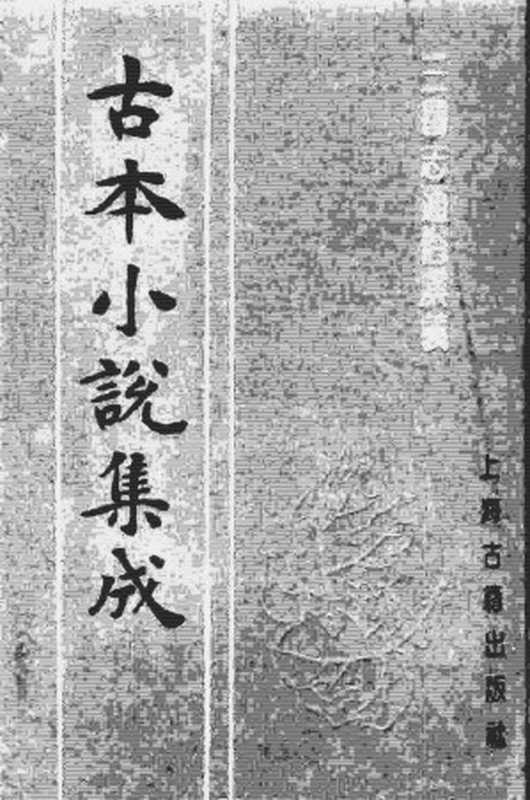 古本小說集成
上海古籍出版社